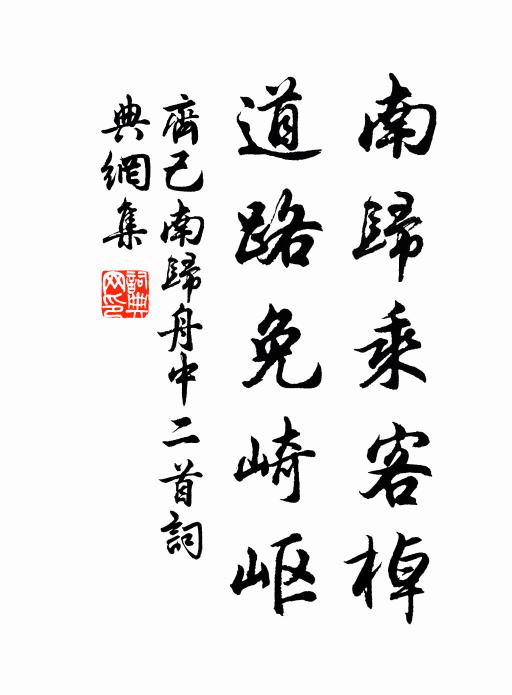 南歸乘客棹
道路免崎岖
齊己南歸舟中二首詞
典網集
詞典
网印